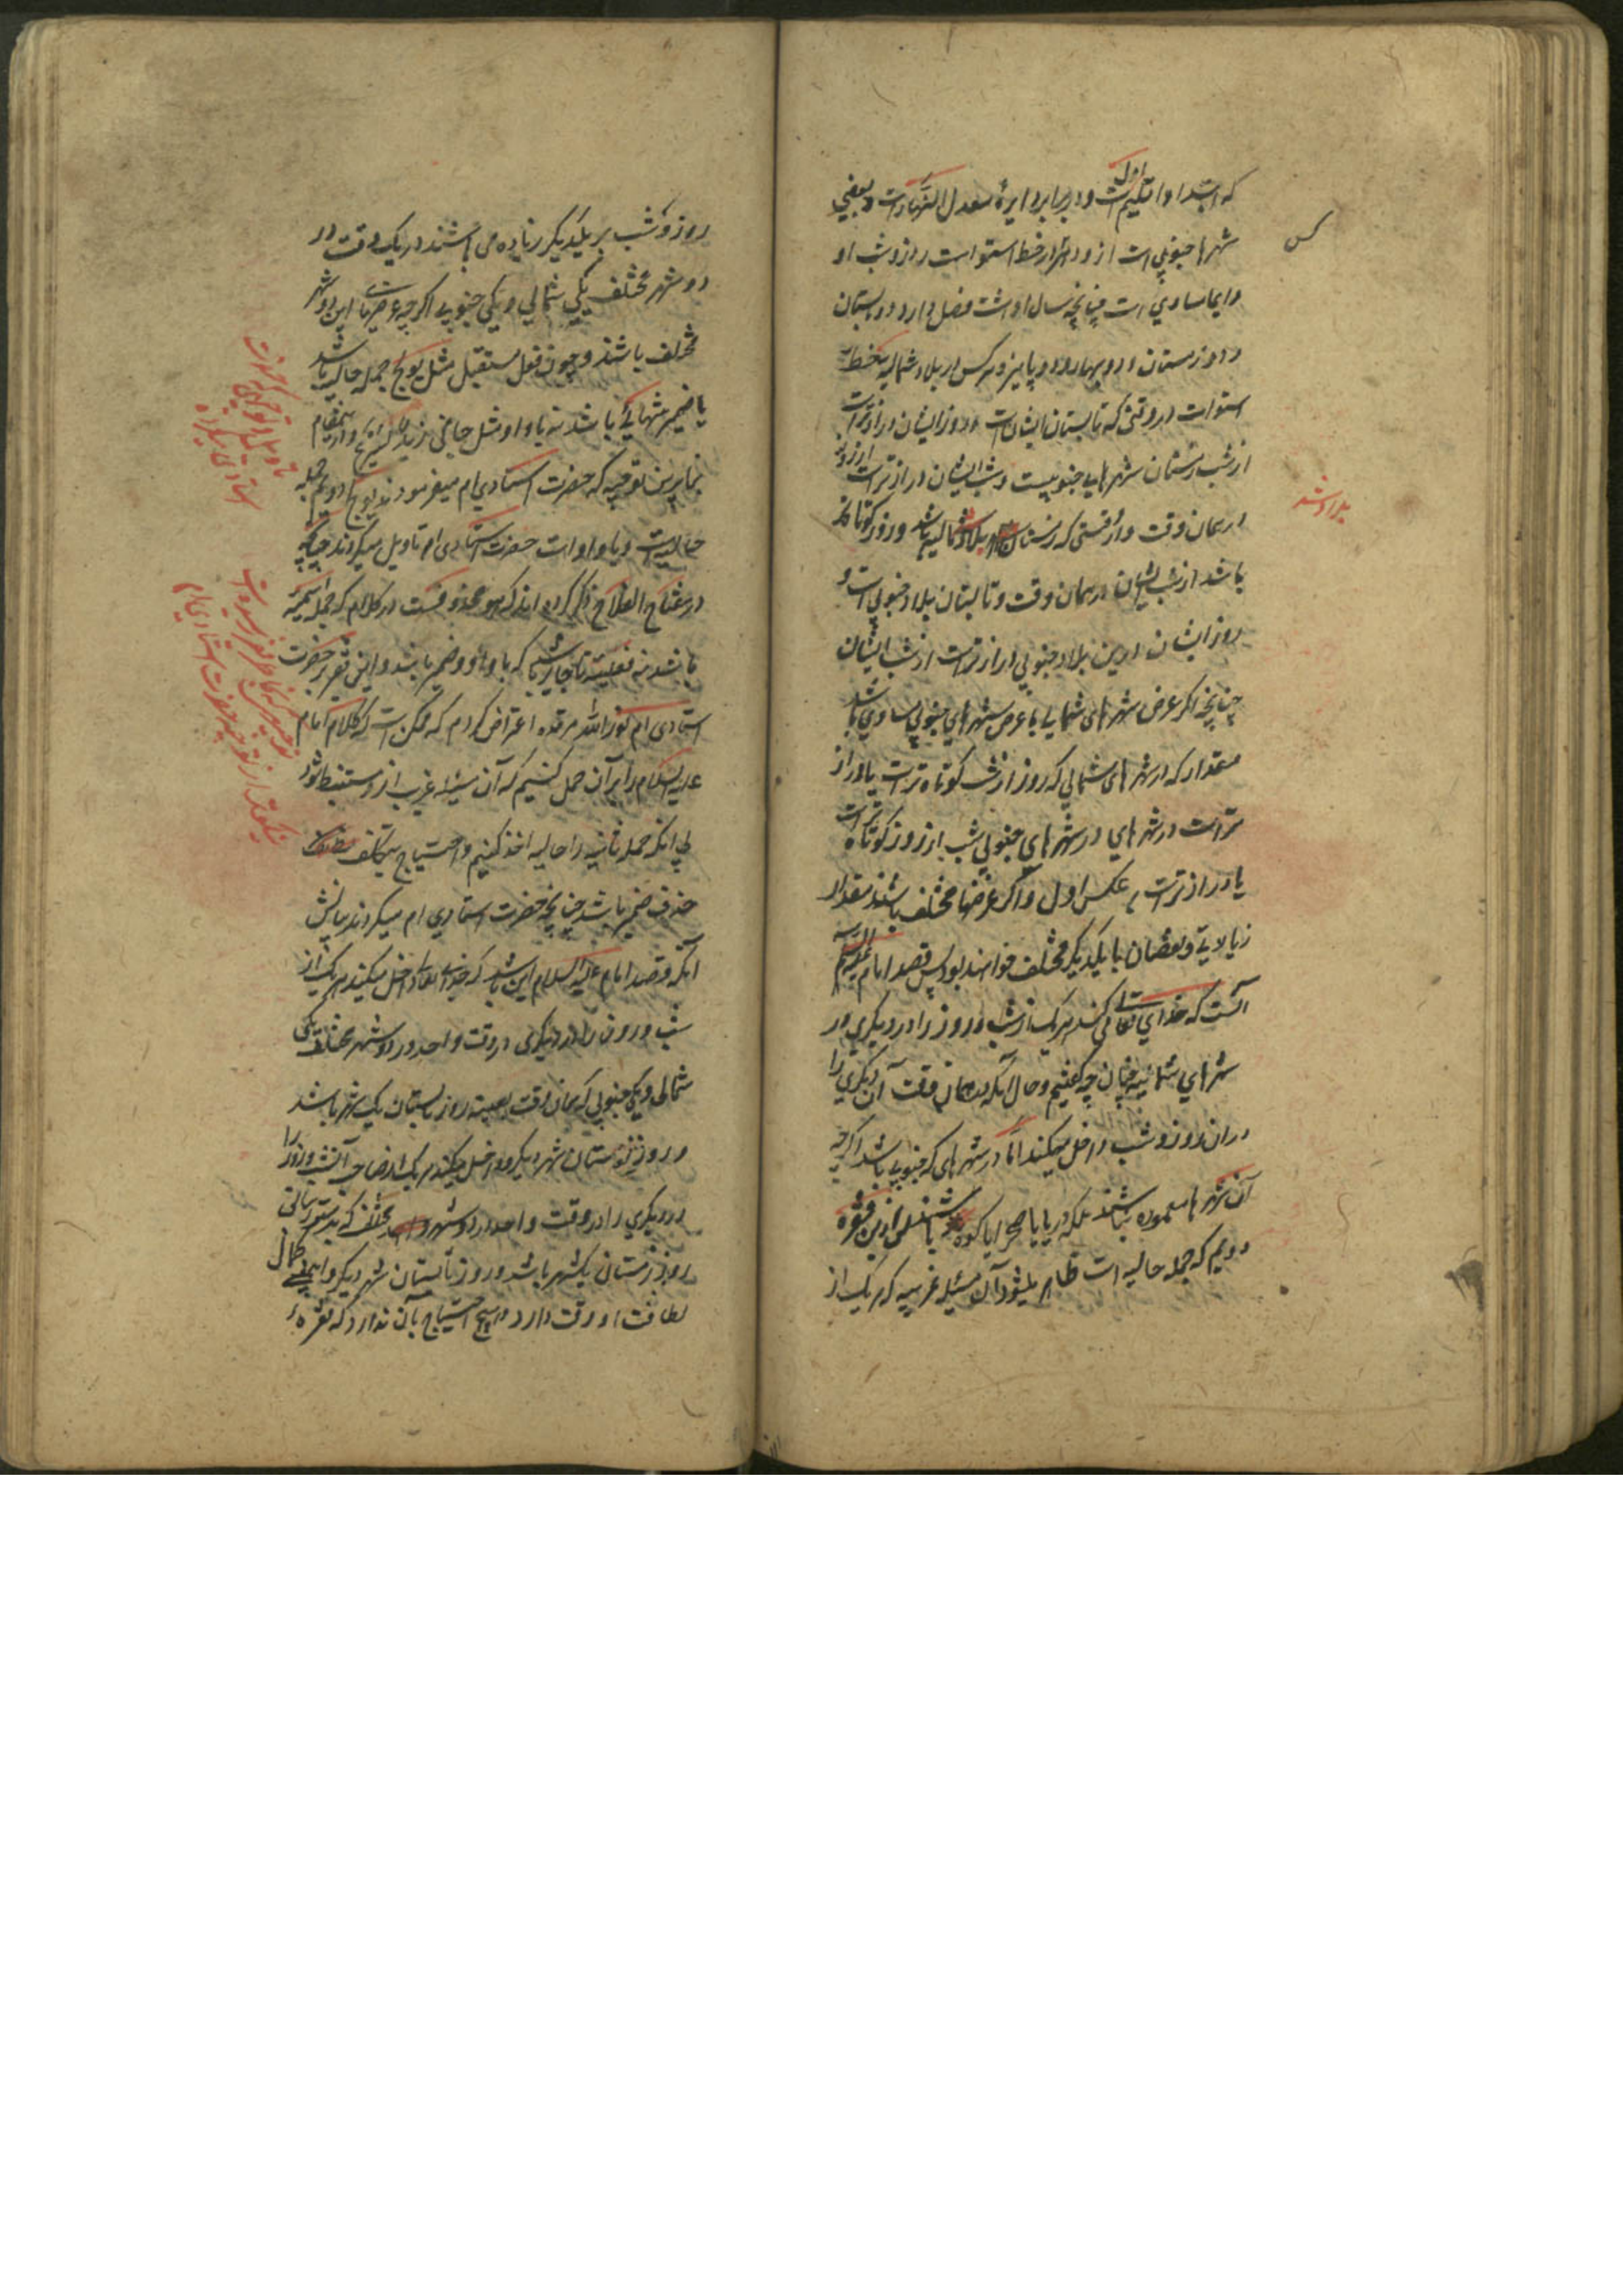 که ابتداء اقلیم اول است و در برابر دایرهٔ معدل النهار است و بعضی
شهرها جنوبی است از و در هر خط استوا است روز و شب او
دایما مساوی است چنانچه سال او هشت فصل دارد دو تابستان
و دو زمستان و دو بهار و دو پاییز و هرکس از بلاد شمالیه خط
استوا است در وقتی که تابستان ایشان است و روز ایشان درازتر است
از شب زمستان شهرهای جنوبیست و شب ایشان درازتر است از روز
در همان وقت و در وقتی که زمستان بلاد شمالیه باشد و روز کوتاه‌تر
باشد از شب ایشان در همان وقت تابستان بلاد جنوبی است و
روز ایشان در این بلاد جنوبی درازتر است از شب ایشان
چنانچه اگر عرض شهرهای شمالی با عرض شهرهای جنوبی مساوی باشد
مقدار که در شهرهای شمالی که روز از شب کوتاه‌تر است یا دراز
تر است در شهرهای جنوبی شب از روز کوتاه‌تر است
یا درازتر است بر عکس اول و اگر عرضها مختلف باشند مقدار
زیادتی و نقصان با یکدیگر مختلف خواهند بود پس قصد امام علیه السلام
آنست که خدای تعالی میکند هر یک از شب و روز را در دیگری در
شهرهای شمالیه چنان چه گفتیم و حال آنکه در همان وقت آن دیگری را
در آن روز و شب داخل میکند اما در شهرهای که جنوبی باشد اگرچه
آن شهرها معموره نباشند بلکه دریا یا صحرا یا کوه باشند پس از این فقره
دویم که جمله حالیه است ظاهر میشود آن مسئله غریبه که هر یک از
روز و شب بر یکدیگر زیاده می باشند در یک وقت در
دو شهر مختلف یکی شمالی و یکی جنوبی اگر چه عرضهای این دو شهر
مختلف باشند و چون فعل مستقبل مثل یولج جمله حالیه باشد
با ضمیر تنهایی باشد نه با واو مثل جاءنی زید یسرع و در این مقام
بنابراین توجیه که حضرت استادی ام میفرمودند یولج دویم جمله
حالیه است و با واو است حضرت استادی ام تاویل میکردند چنانچه
در مفتاح الفلاح ذکر کرده اند که هو محذوفست در کلام که جمله اسمیه
باشد نه فعلیه تا جایز باشد که با واو و ضمیر باشد و این فقیر بر حضرت
استادی ام نور الله مرقده اعتراض کردم که ممکن است که کلام امام
علیه السلام را بر آن حمل کنیم که آن مسئله غریب از او مستنبط شود
بی آنکه جمله ثانیه را حالیه اخذ کنیم و احتیاج بتکلف
حذف ضمیر باشد چنانچه حضرت استادی ام میکردند بیانش
آنکه قصد امام علیه السلام این باشد که خدای تعالی داخل میکند هر یک از
شب و روز را در دیگری در وقت واحد در دو شهر مختلف یکی
شمالی و یکی جنوبی که همان وقت بعینه روز تابستان یک شهر باشد
و روز زمستان شهر دیگر و داخل میکند هر یک از صاحب آن شب و روز را
در دیگری را در وقت واحد در دو شهر مختلف که بدستور سابق
روز زمستان یکشهر باشد و روز تابستان شهر دیگر و این معنی کمال
لطافت و دقت دارد و هیچ احتیاج بآن ندارد که فقره